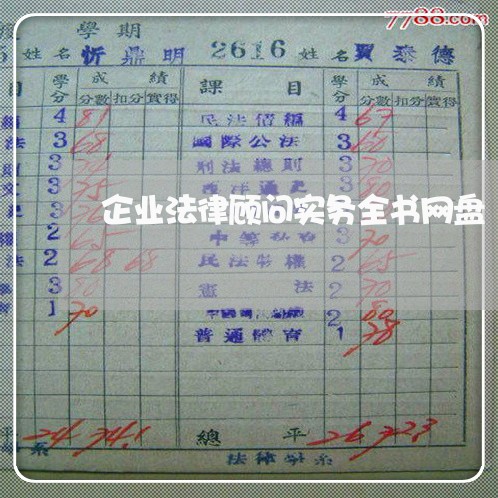 7788.com
學期
姓名 忻鼎明 2616 姓名 賈泰德
目 學分 成績 課目 學分 成績
分數 扣分 實得 分數 扣分 實得
4 81 民法債編 4 67
法 3 68 國際公法 3 60
3 刑法總則 3 70
3 75 西洋通史 3 80
企业法律顾问实务全书网盘
2 65 3 70
法 2 68 68 民法物權 2 65
3 80 憲法 2 70
1 70 2 80
普通體育 1 78
平 24 74.1 總平 26 72.3
系 法律學系